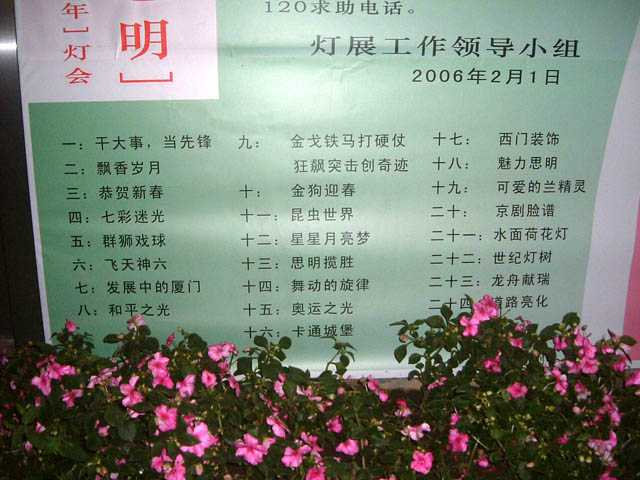 年］灯会
明］
120求助电话。
灯展工作领导小组
2006年2月1日
一：干大事，当先锋
二：飘香岁月
三：恭贺新春
四：七彩迷光
五：群狮戏球
六：飞天神六
七：发展中的厦门
八：和平之光
九：金戈铁马打硬仗
狂飙突击创奇迹
十：金狗迎春
十一：昆虫世界
十二：星星月亮梦
十三：思明揽胜
十四：舞动的旋律
十五：奥运之光
十六：卡通城堡
十七：西门装饰
十八：魅力思明
十九：可爱的兰精灵
二十：京剧脸谱
二十一：水面荷花灯
二十二：世纪灯树
二十三：龙舟献瑞
二十四 道路亮化